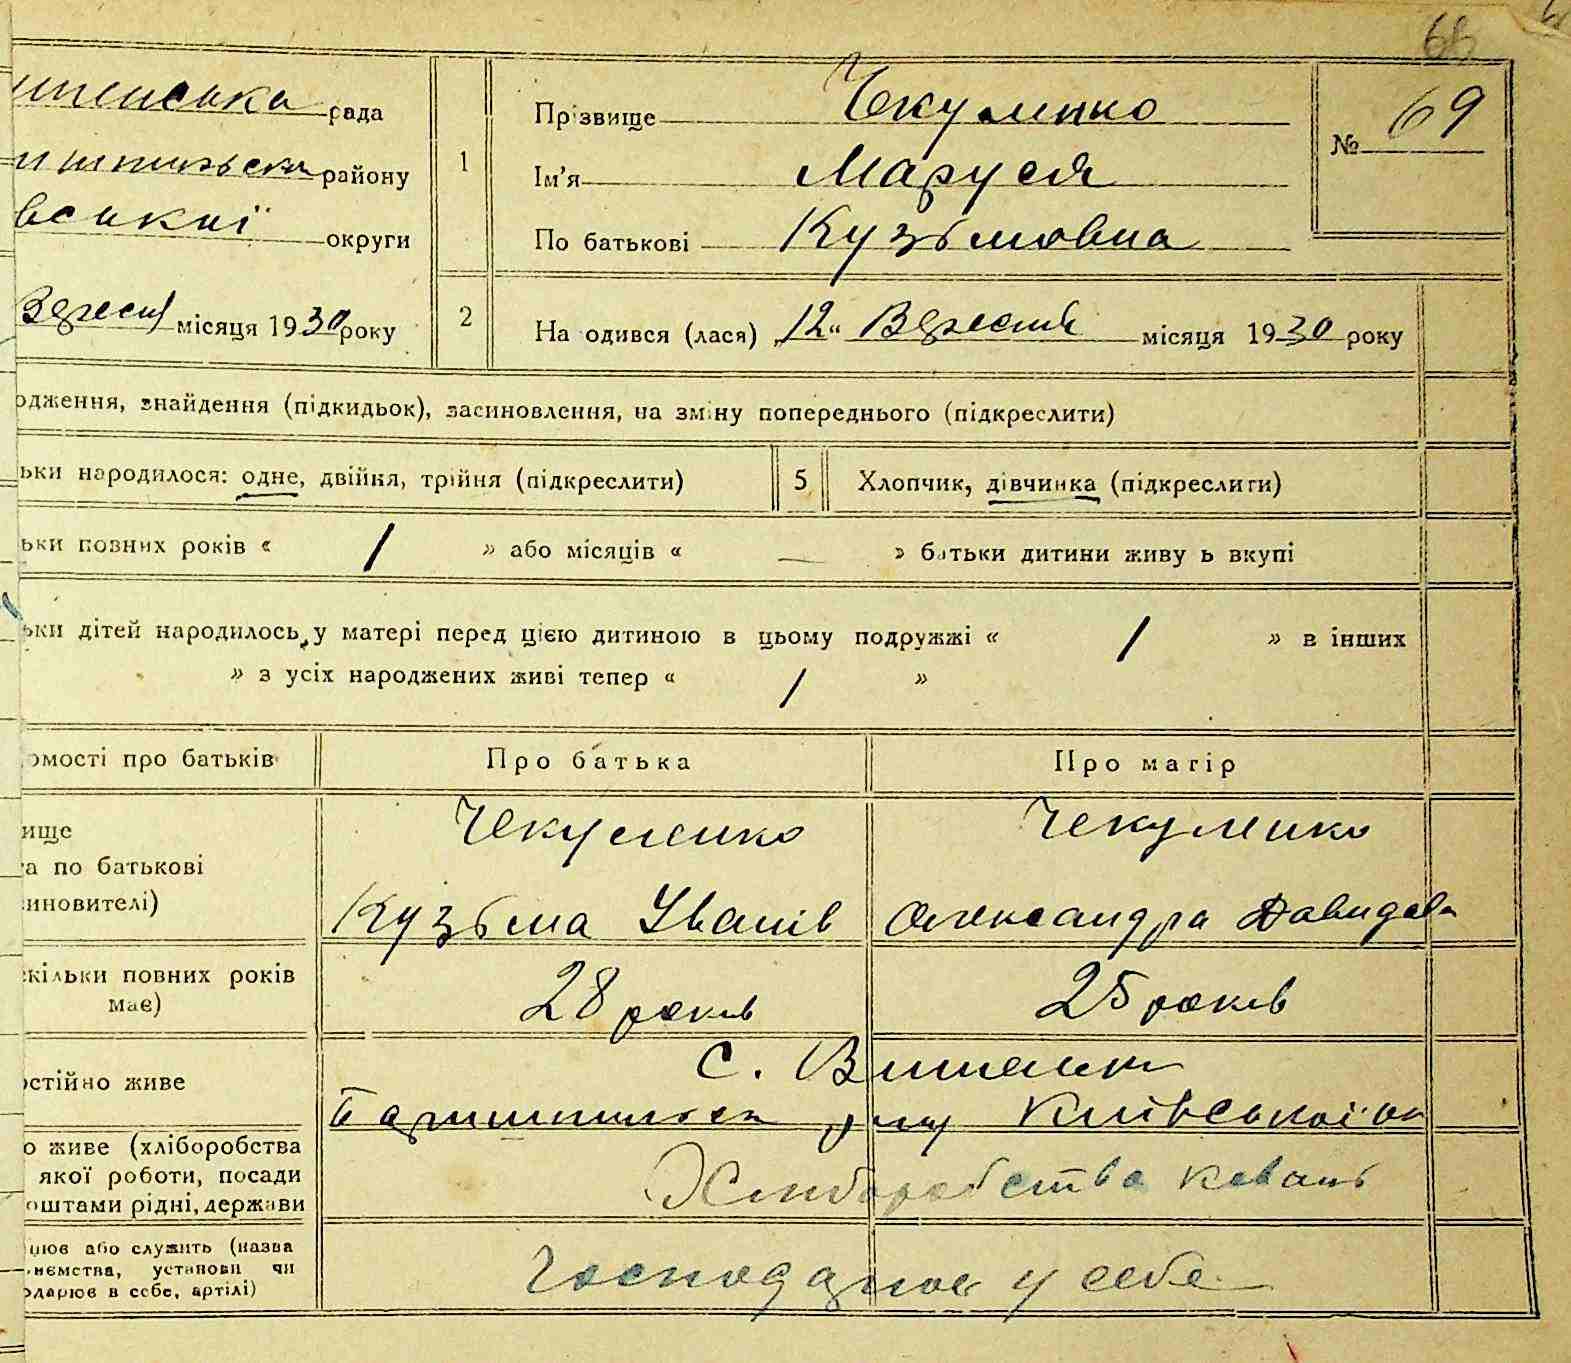 68
шенська рада
1
Прізвище Чекуменко
№ 69
району
Ім'я Маруся
вської округи
По батькові Кузьмовна
Вересня місяця 1930 року
2
На одився (лася) „12“ Вересня місяця 1930 року
одження, знайдення (підкидьок), засиновлення, на зміну попереднього (підкреслити)
ьки народилося: одне, двійня, трійня (підкреслити)
5
Хлопчик, дівчинка (підкреслити)
ьки повних років « 1 » або місяців « — » батьки дитини живу ь вкупі
ьки дітей народилось у матері перед цією дитиною в цьому подружжі « 1 » в інших
» з усіх народжених живі тепер « 1 »
омості про батьків
Про батька
Про матір
ище
а по батькові
иновителі)
Чекуменко
Кузьма Иванів
Чекуменко
Олександра Давидова
скільки повних років
має)
28 років
25 років
остійно живе
С.
Київської ок
о живе (хліборобства
якої роботи, посади
оштами рідні, держави
Хліборобства коваль
цює або служить (назва
иємства, установи чи
одарює в себе, артілі)
Господарює у себе